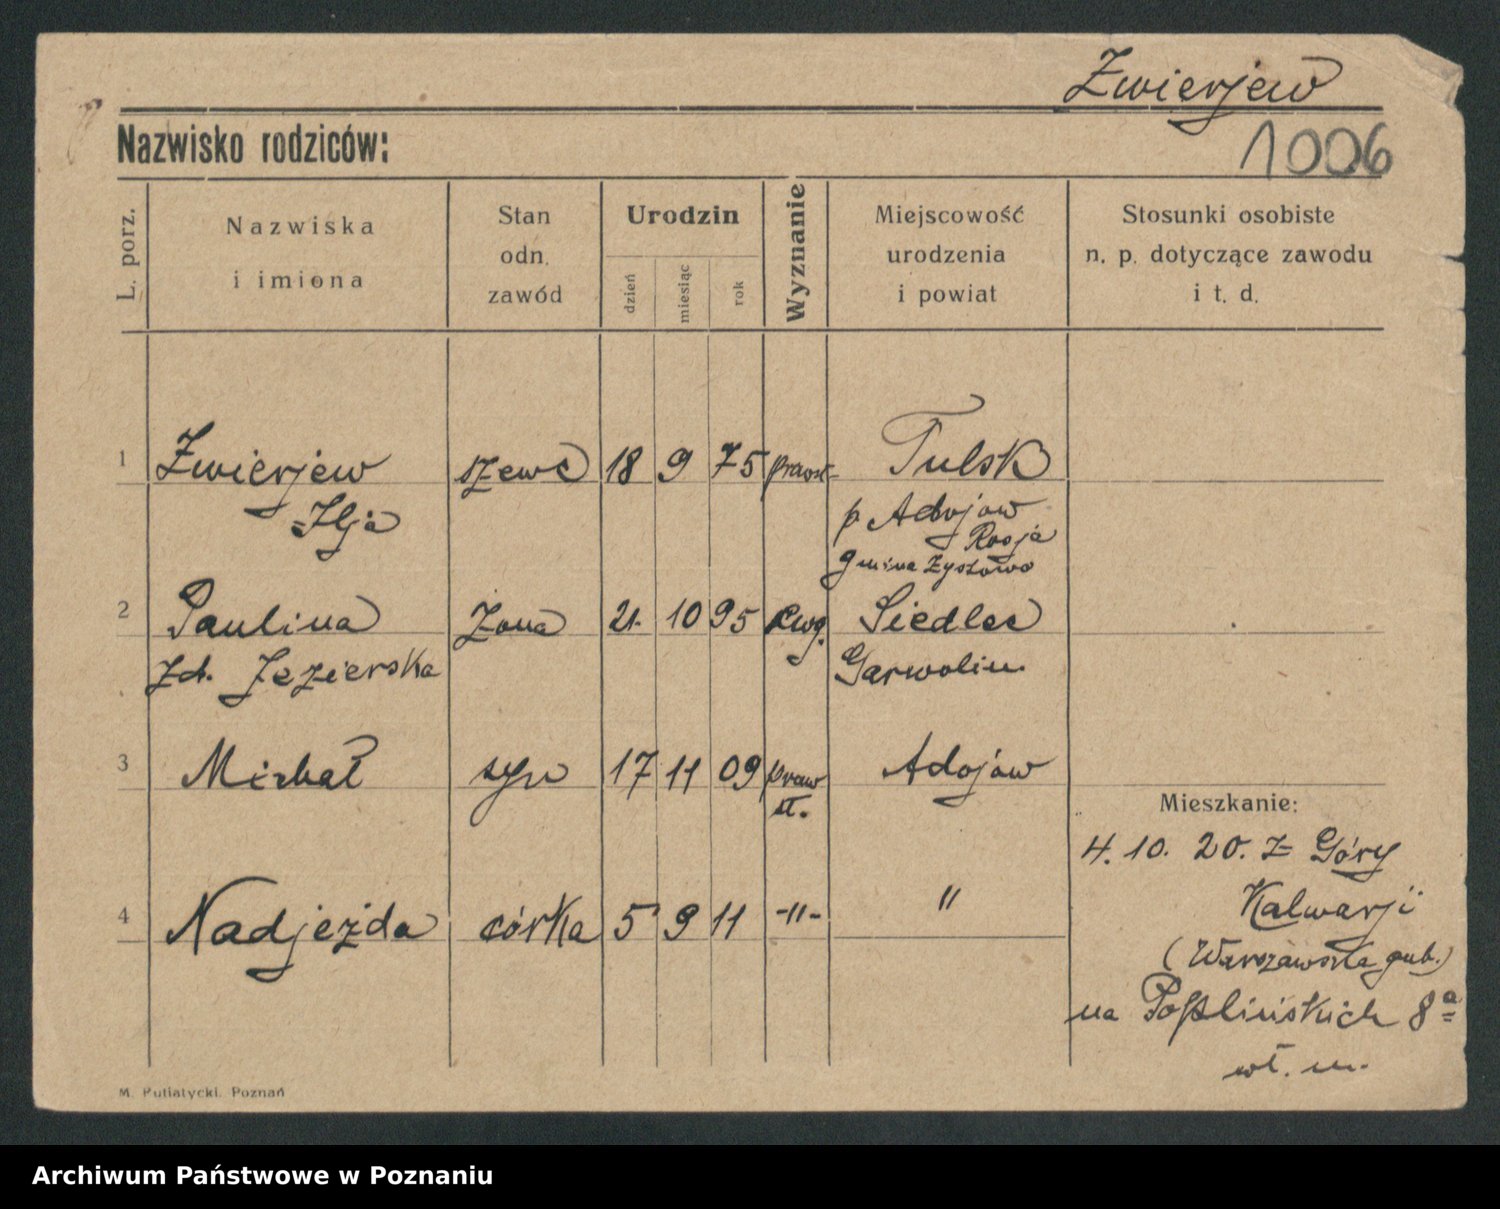 Zwierjew
Nazwisko rodziców:
1006
L. porz.
Nazwiska
i imiona
Stan
odn.
zawód
Urodzin
dzień
miesiąc
rok
Wyznanie
Miejscowość
urodzenia
i powiat
Stosunki osobiste
n. p. dotyczące zawodu
i t. d.
1 Zwierjew szewc 18 9 75 prawosł. Tulsk
Ilja p Adojow
Rosja
gmina
2 Paulina żona 21. 10 95 ewg. Siedlec
zd. Jezierska Garwolin
3 Michał syn 17 11 09 praw Adojów
sł.
Mieszkanie:
4. 10. 20. z Góry
Kalwarji
(Warszawska gub.)
4 Nadjeżda córka 5 9 11 -"- "
na 8a
wł. m.
M. Putiatycki. Poznań
Archiwum Państwowe w Poznaniu